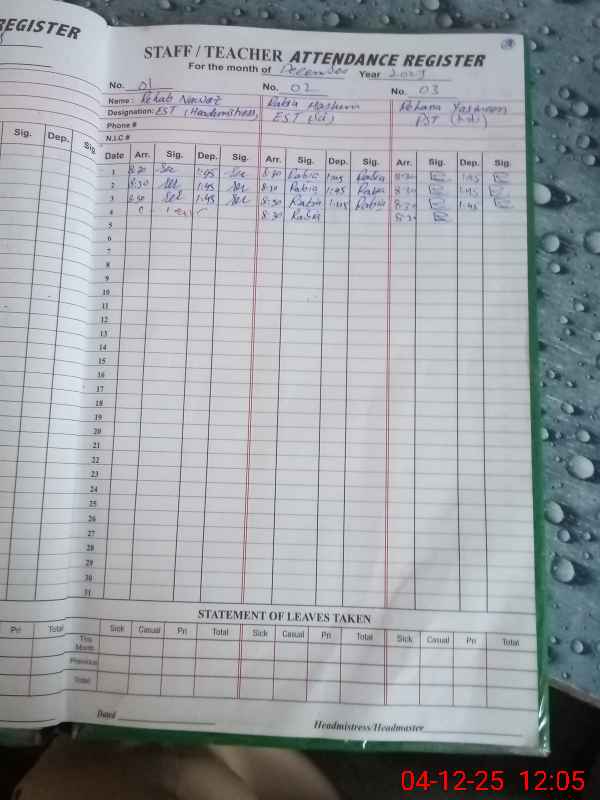 REGISTER
STAFF / TEACHER ATTENDANCE REGISTER
For the month of December Year
No. 01 No. 02 No. 03
Name: Rehab Nawaz Rabia Hashmi Rehana Yasmeen
Designation: EST (Headmistress) EST PST
Phone #
N.I.C #
Sig. Dep. Sig.
Date Arr. Sig. Dep. Sig. Arr. Sig. Dep. Sig. Arr. Sig. Dep. Sig.
1 8:30 1:45 8:30 Rabia 1:45 Rabia 8:30 1:45
2 8:30 1:45 8:30 Rabia 1:45 Rabia 8:30 1:45
3 8:30 1:45 8:30 Rabia 1:45 Rabia 8:30 1:45
4 8:30 Rabia 8:30
5
6
7
8
9
10
11
12
13
14
15
16
17
18
19
20
21
22
23
24
25
26
27
28
29
30
31
STATEMENT OF LEAVES TAKEN
Pri Total
Sick Casual Pri Total Sick Casual Pri Total Sick Casual Pri Total
This Month
Previous
Total
Dated
Headmistress/Headmaster
04-12-25 12:05